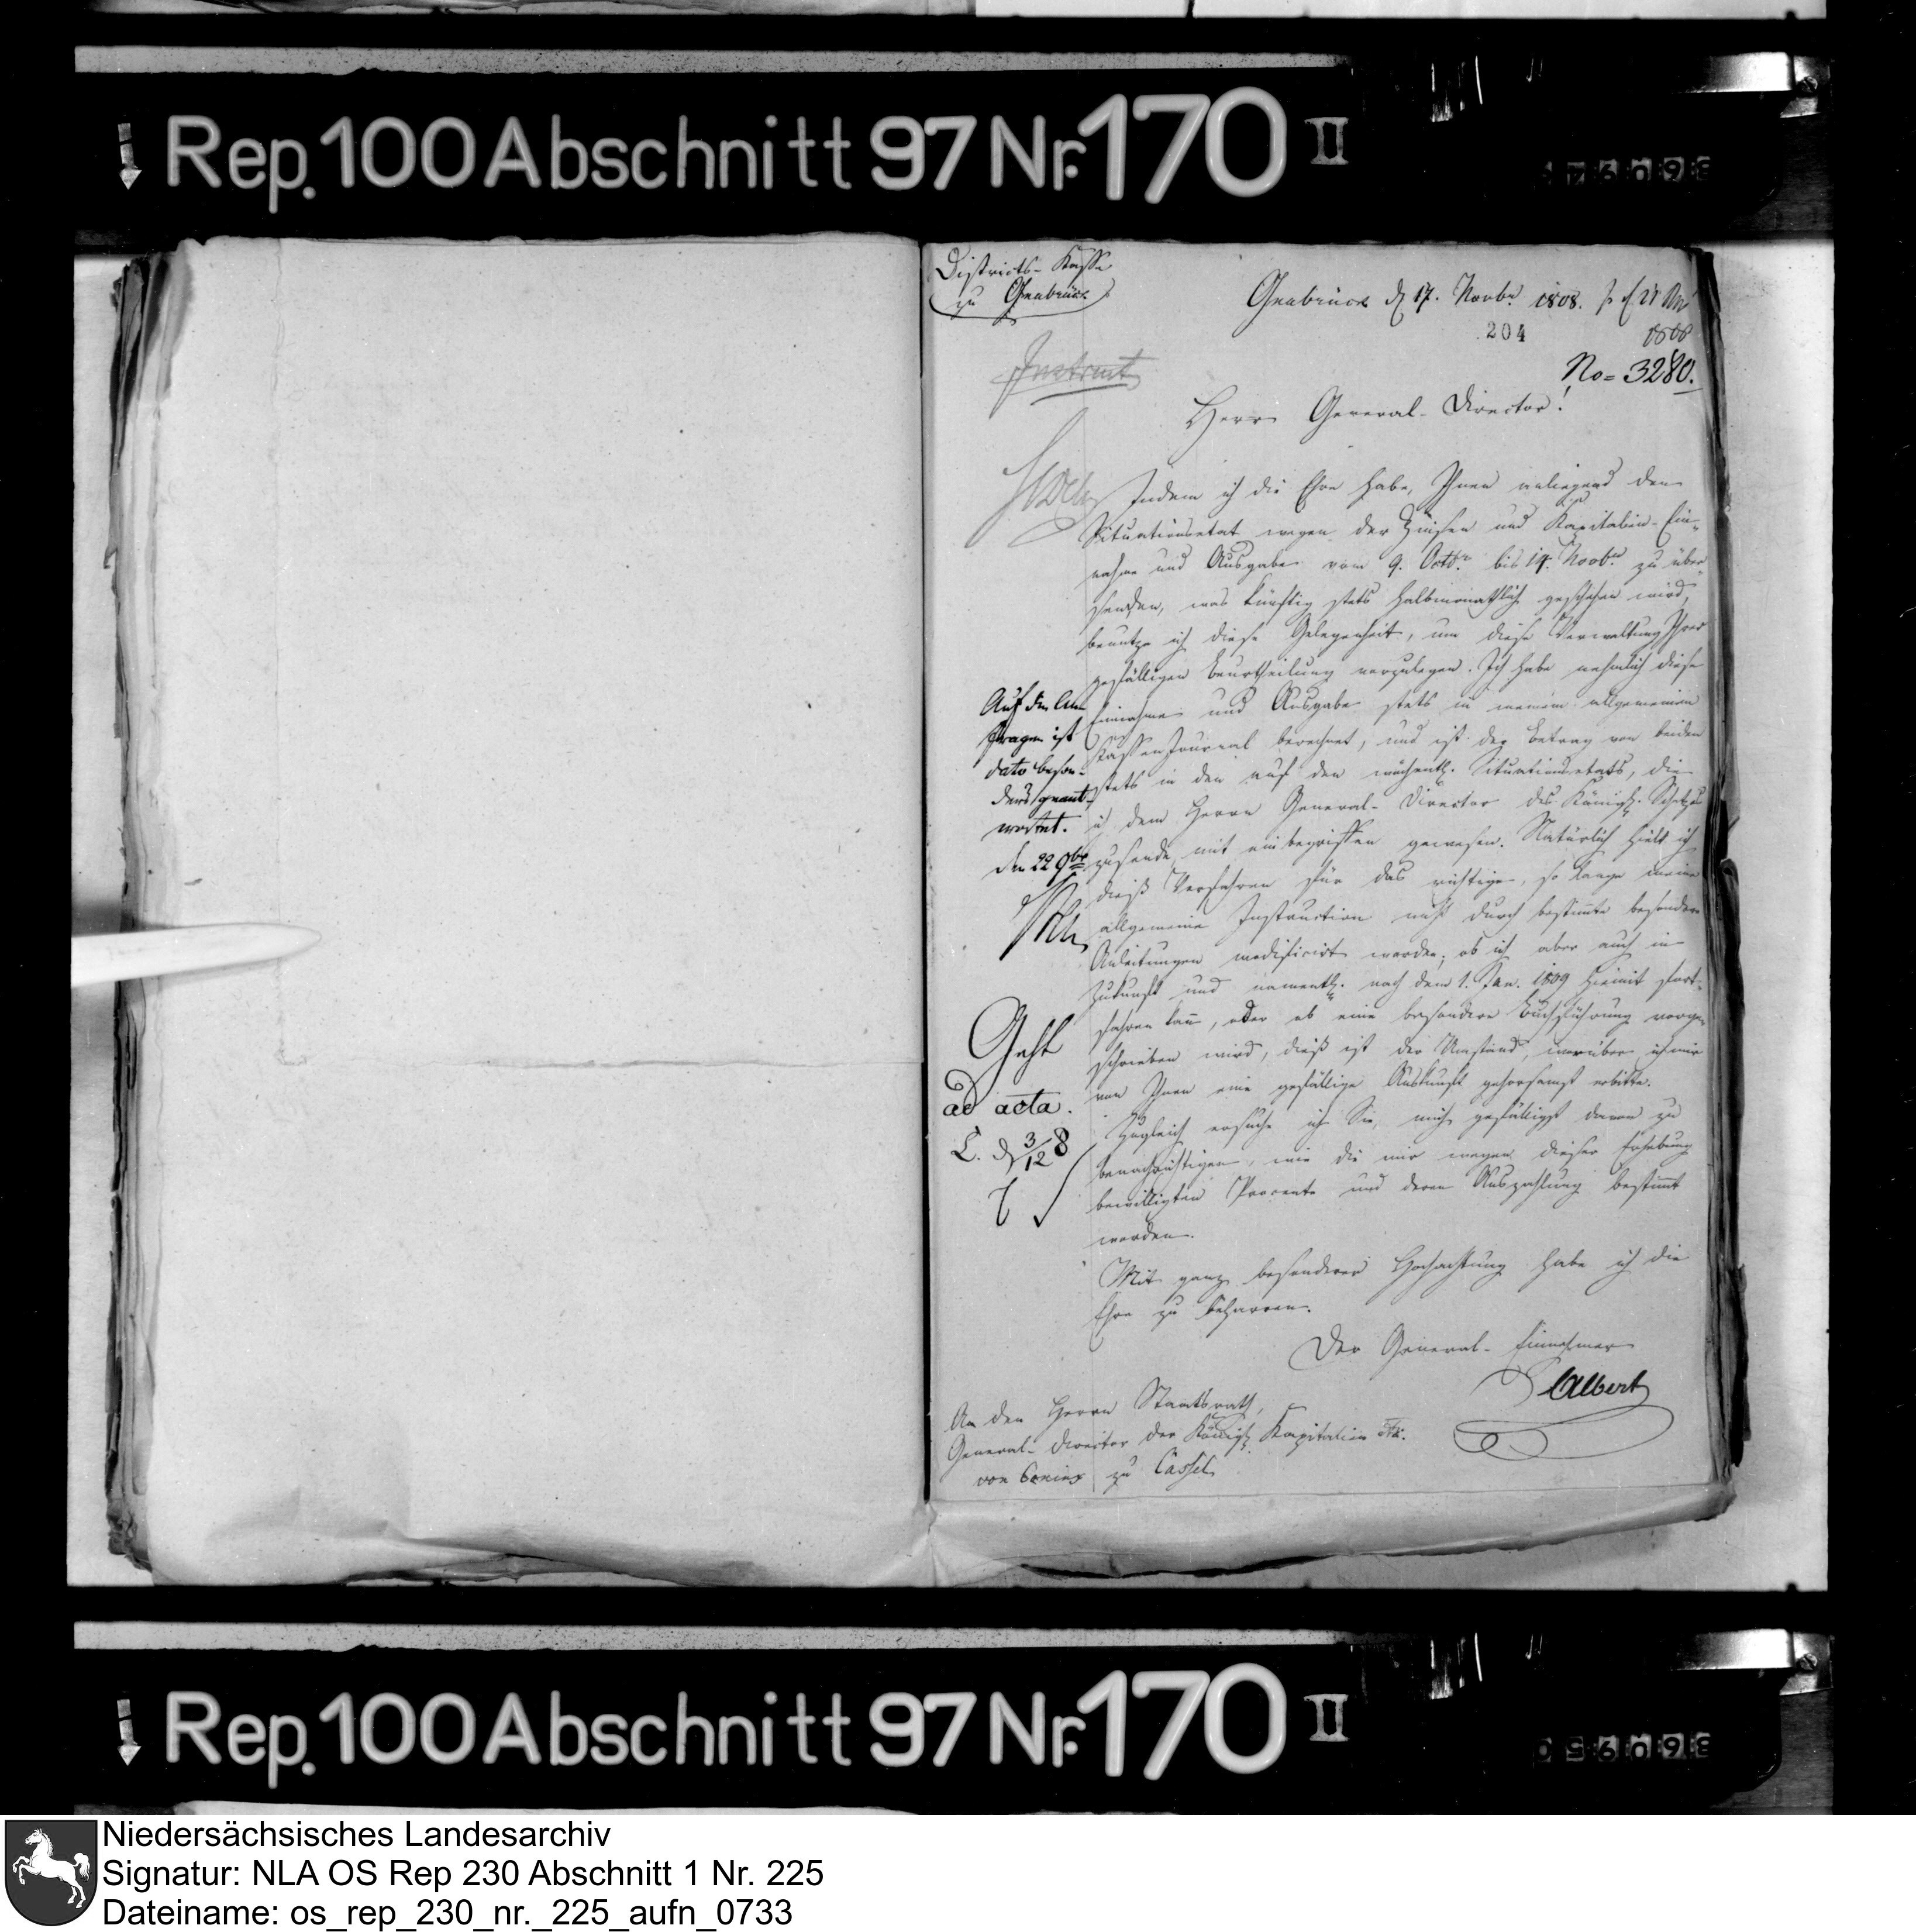 Rep. 100 Abschnitt 97 Nr. 170 II
Districts-Kasse
zu Osnabrück
Osnabrück d 17. Novbr. 1808.
204
1808
No = 3280.
Herr General-Director!
Indem ich die Ehre habe, Ihnen anliegend den
Situationsetat wegen der Zinsen und Kapitalien-Ein-
nahme und Ausgabe vom 9. Octbr. bis 14. Novbr. zu über-
senden, was künftig stets halbmonathlich geschehen wird,
benutze ich diese Gelegenheit, um diese Verwaltung Ihrer
gefälligen Beurtheilung vorzulegen. Ich habe nehmlich diese
Einnahme und Ausgabe stets in meinem allgemeinen
Kassen Journal berechnet, und ist der Betrag von beiden
stets in den auf den wöchentl. Situationsetats, die
ich dem Herrn General-Director des Königl. Schatzes
zusende, mit einbegriffen gewesen. Natürlich hielt ich
dieß Verfahren für das richtige, so lange meine
allgemeine Instruction nicht durch bestimmte besondere
Anleitungen modificirt worden; ob ich aber auch in
Zukunft und namentl. nach dem 1. Jan. 1809 hiemit fort-
fahren kan, oder ob eine besondere Buchführung vorge-
schrieben wird, dieß ist der Umstand, worüber ich mir
von Ihnen eine gefällige Auskunft gehorsamst erbitte.
Zugleich ersuche ich Sie, mich gefälligst davon zu
benachrichtigen, wie die mir wegen dieser Erhebung
bewilligten Procente und deren Auszahlung bestimmt
worden.
Mit ganz besonderer Hochachtung habe ich die
Ehre zu beharren.
Der General-Einnehmer
Albert
An den Herrn Staatsrath,
General-Director der Königl. Kapitalien etc.
von Coninx zu Cassel
Auf den An
fragen ist
dato beson-
ders geant-
wortet.
den 22 9br
Geht
ad acta.
C. d 3/12 8
Rep. 100 Abschnitt 97 Nr. 170 II
Niedersächsisches Landesarchiv
Signatur: NLA OS Rep 230 Abschnitt 1 Nr. 225
Dateiname: os_rep_230_nr._225_aufn_0733